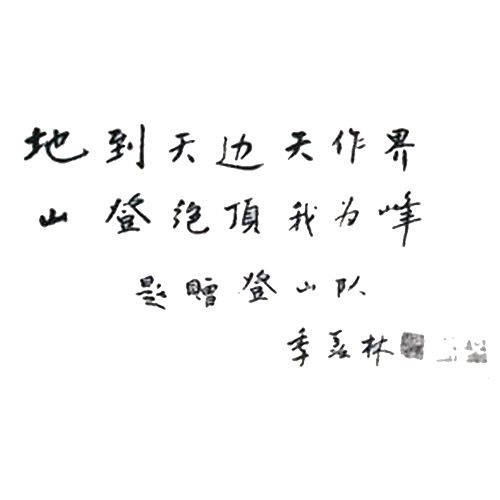 地到天边天作界
山登绝頂我为峰
题赠登山队
季羡林